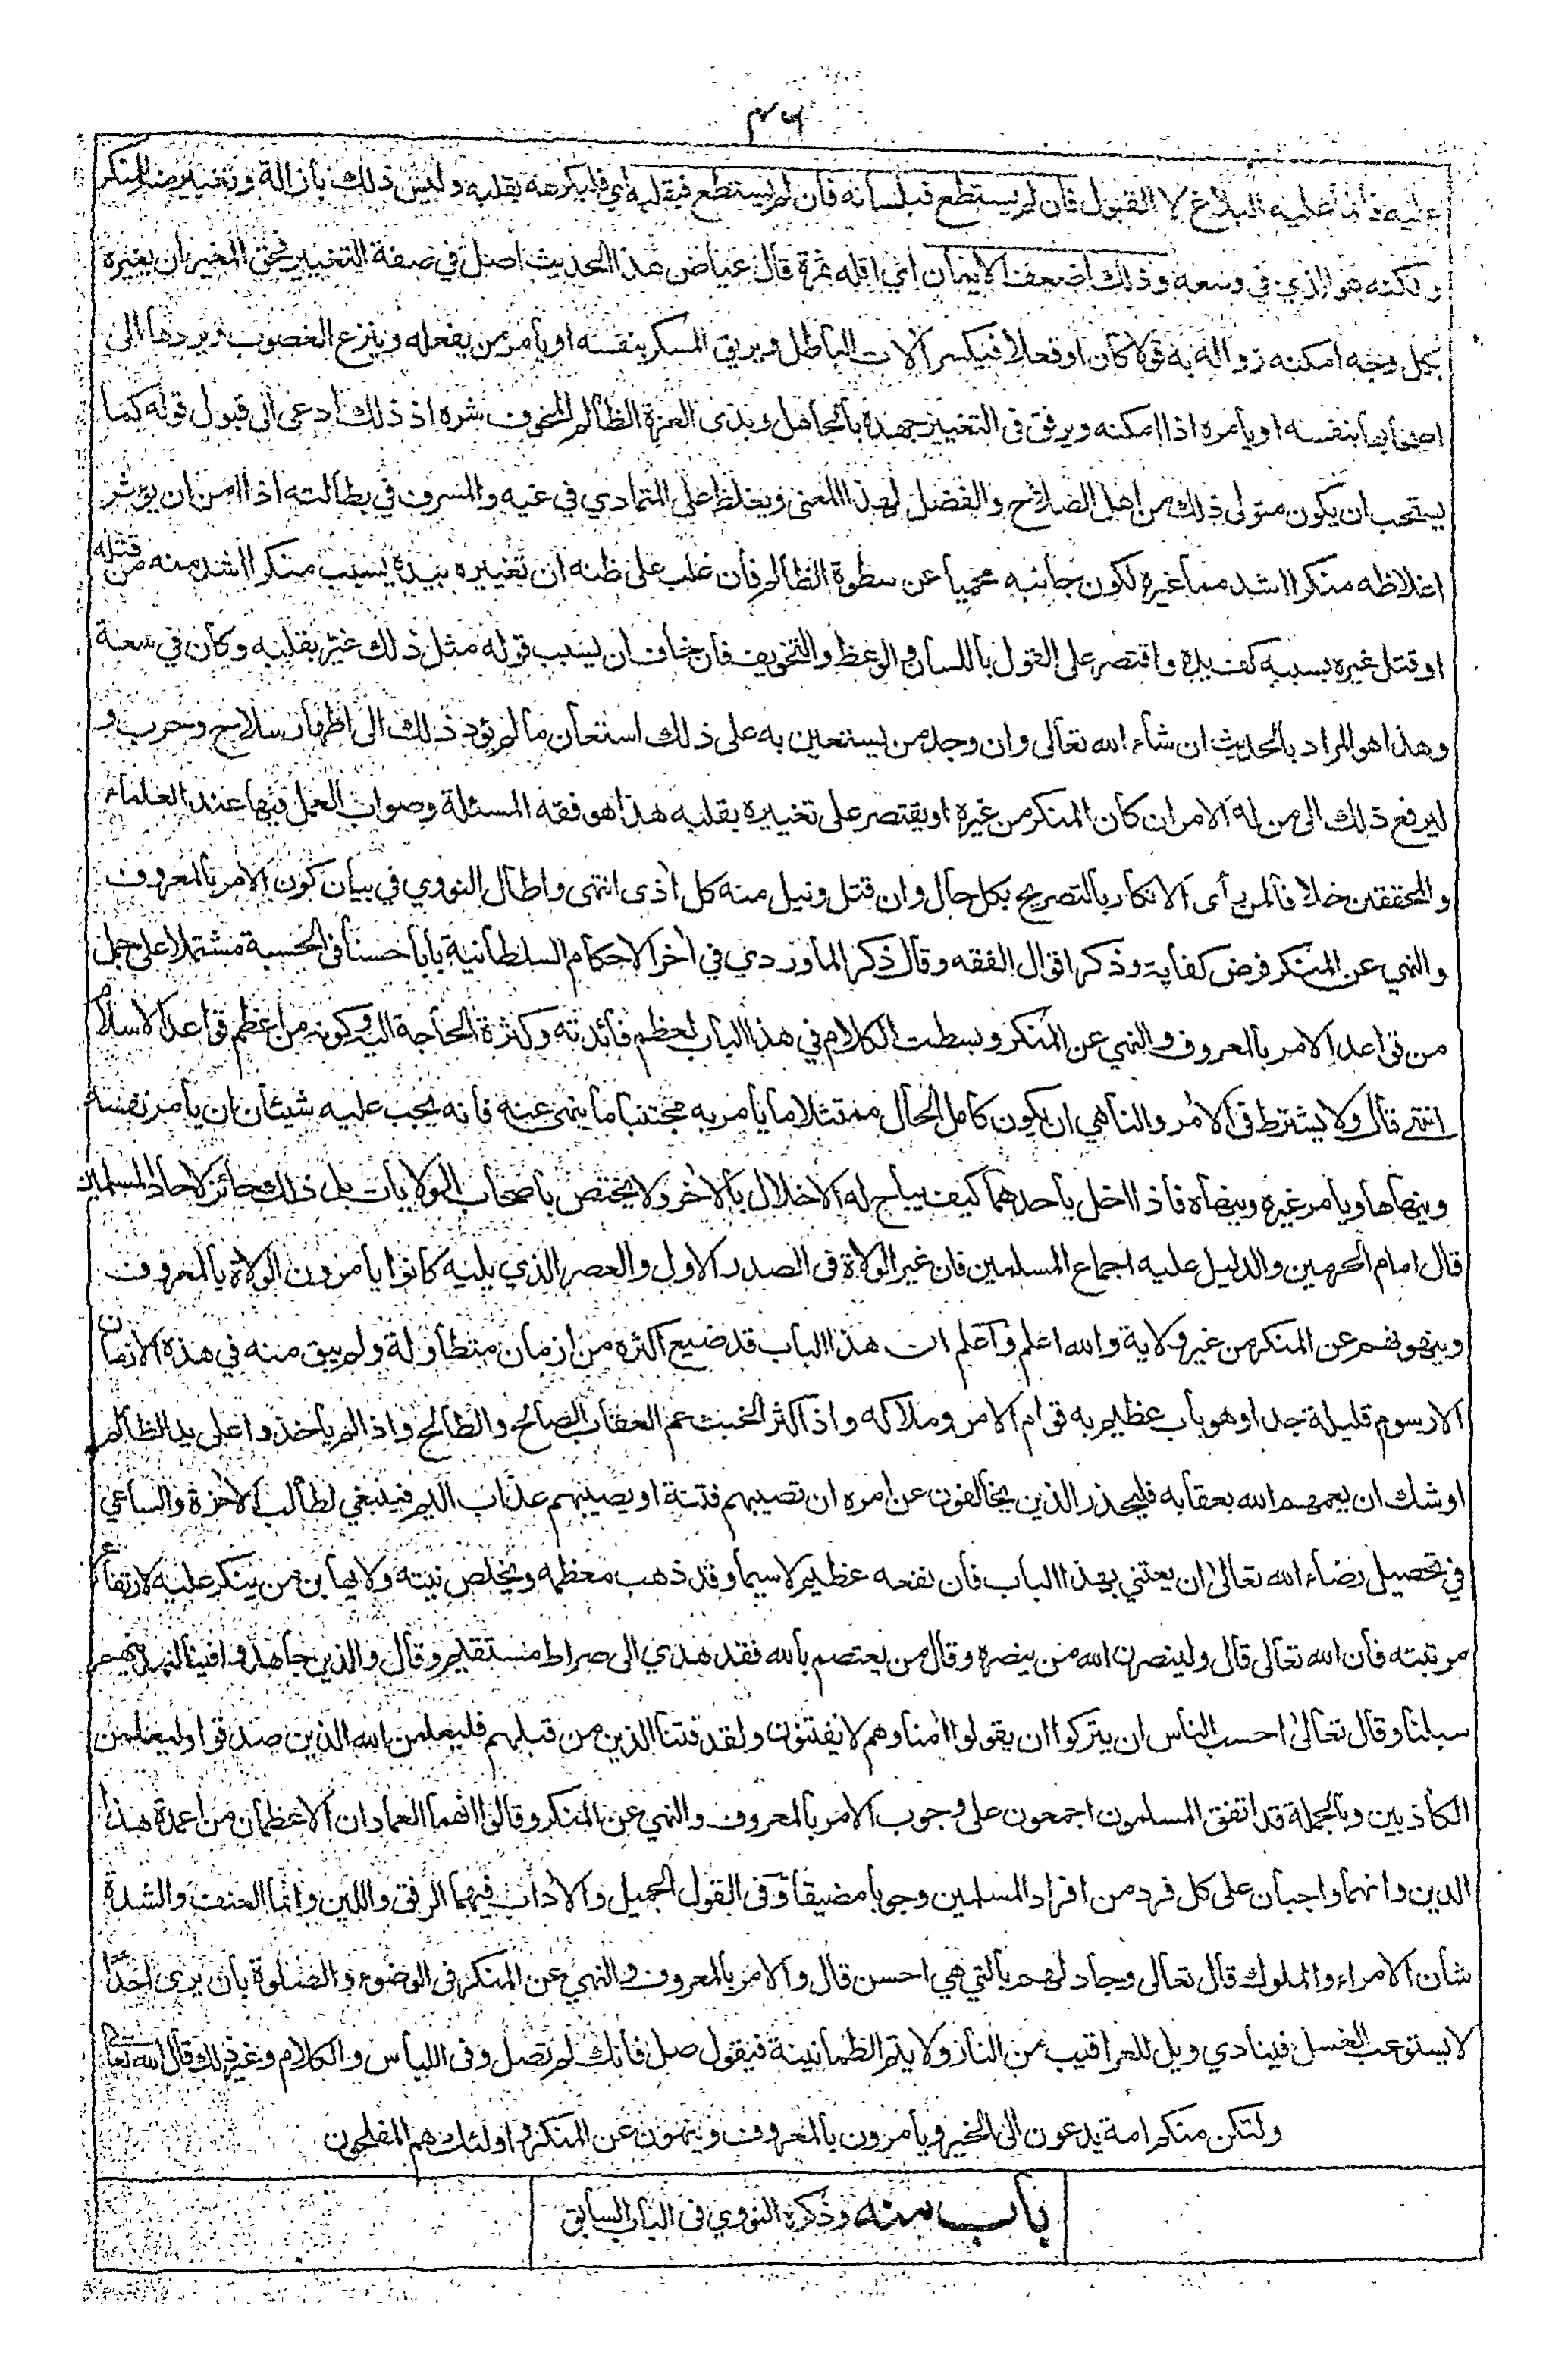 ٣٤
عليه فانما عليه البلاغ لا القبول فان لم يستطع فبلسانه فان لم يستطع فبقلبه اي فليكرهه بقلبه وليس ذلك بازالة وتغيير من المنكر
ولكنه هو الذي في وسعه وذلك اضعف الايمان اي اقله ثمرة قال عياض هذا الحديث اصل في صفة التغيير فحق المغير ان يغيره
بكل وجه امكنه زواله به قولا كان او فعلا فيكسر الات الباطل ويريق المسكر بنفسه او يأمر من يفعله وينزع الغصوب ويردها الى
اصحابها بنفسه او يأمره اذا امكنه ويرفق في التغيير جهده بالجاهل وبذى العزة الظالم المخوف شره اذ ذلك ادعى الى قبول قوله كما
يستحب ان يكون متولى ذلك من اهل الصلاح والفضل لهذا المعنى ويغلظ على المتمادي في غيه والمسرف في بطالته اذا امن ان يؤثر
اغلاظه منكرا اشد مما غيره لكون جانبه محميا عن سطوة الظالم فان غلب على ظنه ان تغييره بيده يسبب منكرا اشد منه من قتله
او قتل غيره بسببه كف يده واقتصر على القول باللسان والوعظ والتخويف فان خاف ان يسبب قوله مثل ذلك غير بقلبه وكان في سعة
وهذا هو المراد بالحديث ان شاء الله تعالى وان وجد من يستعين به على ذلك استعان ما لم يؤد ذلك الى اظهار سلاح وحرب و
ليرفع ذلك الى من له الامر ان كان المنكر من غيره او يقتصر على تغييره بقلبه هذا هو فقه المسئلة وصواب العمل فيها عند العلماء
والمحققين خلافا لمن رأى الانكار بالتصريح بكل حال وان قتل ونيل منه كل اذى انتهى واطال النووي في بيان كون الامر بالمعروف
والنهي عن المنكر فرض كفاية وذكر اقوال الفقه وقال ذكر الماوردي في اخر الاحكام السلطانية بابا حسنا في الحسبة مشتملا على جمل
من قواعد الامر بالمعروف والنهي عن المنكر وبسطت الكلام في هذا الباب لعظم فائدته وكثرة الحاجة اليه وكونه من اعظم قواعد الاسلام
انتهى قال ولا يشترط في الامر والناهي ان يكون كامل الحال ممتثلا ما يأمر به مجتنبا ما ينهى عنه فانه يجب عليه شيئان ان يأمر نفسه
وينهاها ويأمر غيره وينهاه فاذا اخل باحدهما كيف يباح له الاخلال بالاخر ولا يختص باصحاب الولايات بل ذلك جائز لاحاد المسلمين
قال امام الحرمين والدليل عليه اجماع المسلمين فان غير الولاة في الصدر الاول والعصر الذي يليه كانوا يأمرون الولاة بالمعروف
وينهونهم عن المنكر من غير ولاية والله اعلم واعلم ان هذا الباب قد ضيع اكثره من ازمان متطاولة ولم يبق منه في هذه الازمان
الا رسوم قليلة جدا وهو باب عظيم به قوام الامر وملاكه واذا كثر الخبث عم العقاب الصالح والطالح واذا لم يأخذوا على يد الظالم
اوشك ان يعمهم الله بعقابه فليحذر الذين يخالفون عن امره ان تصيبهم فتنة او يصيبهم عذاب اليم فينبغي لطالب الاخرة والساعي
في تحصيل رضاء الله تعالى ان يعتني بهذا الباب فان نفعه عظيم لا سيما وقد ذهب معظمه ويخلص نيته ولا يهابن من ينكر عليه لارتفاع
مرتبته فان الله تعالى قال ولينصرن الله من ينصره وقال من يعتصم بالله فقد هدي الى صراط مستقيم وقال والذين جاهدوا فينا لنهدينهم
سبلنا وقال تعالى احسب الناس ان يتركوا ان يقولوا امنا وهم لا يفتنون ولقد فتنا الذين من قبلهم فليعلمن الله الذين صدقوا وليعلمن
الكاذبين وبالجملة قد اتفق المسلمون اجمعون على وجوب الامر بالمعروف والنهي عن المنكر وقالوا انهما العمادان الاعظمان من اعمدة هذا
الدين وانهما واجبان على كل فرد من افراد المسلمين وجوبا مضيقا وفي القول الجميل والاداب فيهما الرفق واللين وانما العنف والشدة
شأن الامراء والملوك قال تعالى وجادلهم بالتي هي احسن قال والامر بالمعروف والنهي عن المنكر في الوضوء والصلوة بان يرى احدًا
لا يستوعب الغسل فينادي ويل للعراقيب من النار ولا يتم الطمانينة فيقول صل فانك لم تصل وفي اللباس والكلام وغير ذلك قال الله تعالى
ولتكن منكم امة يدعون الى الخير ويأمرون بالمعروف وينهون عن المنكر واولئك هم المفلحون
باب منه وذكره النووي في الباب السابق